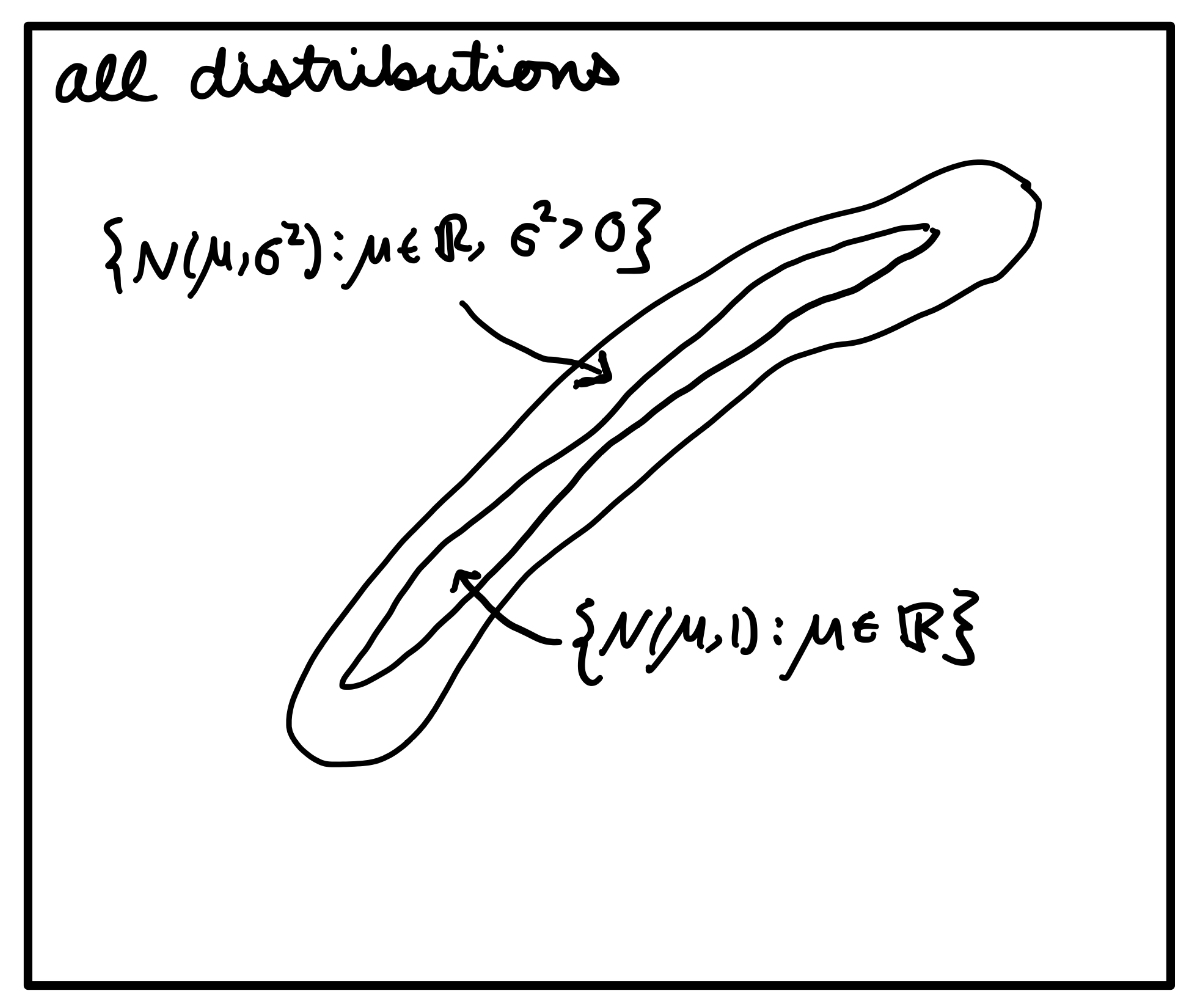 all distributions
{N(μ,σ²): μ∈ℝ, σ²>0}
{N(μ,1): μ∈ℝ}